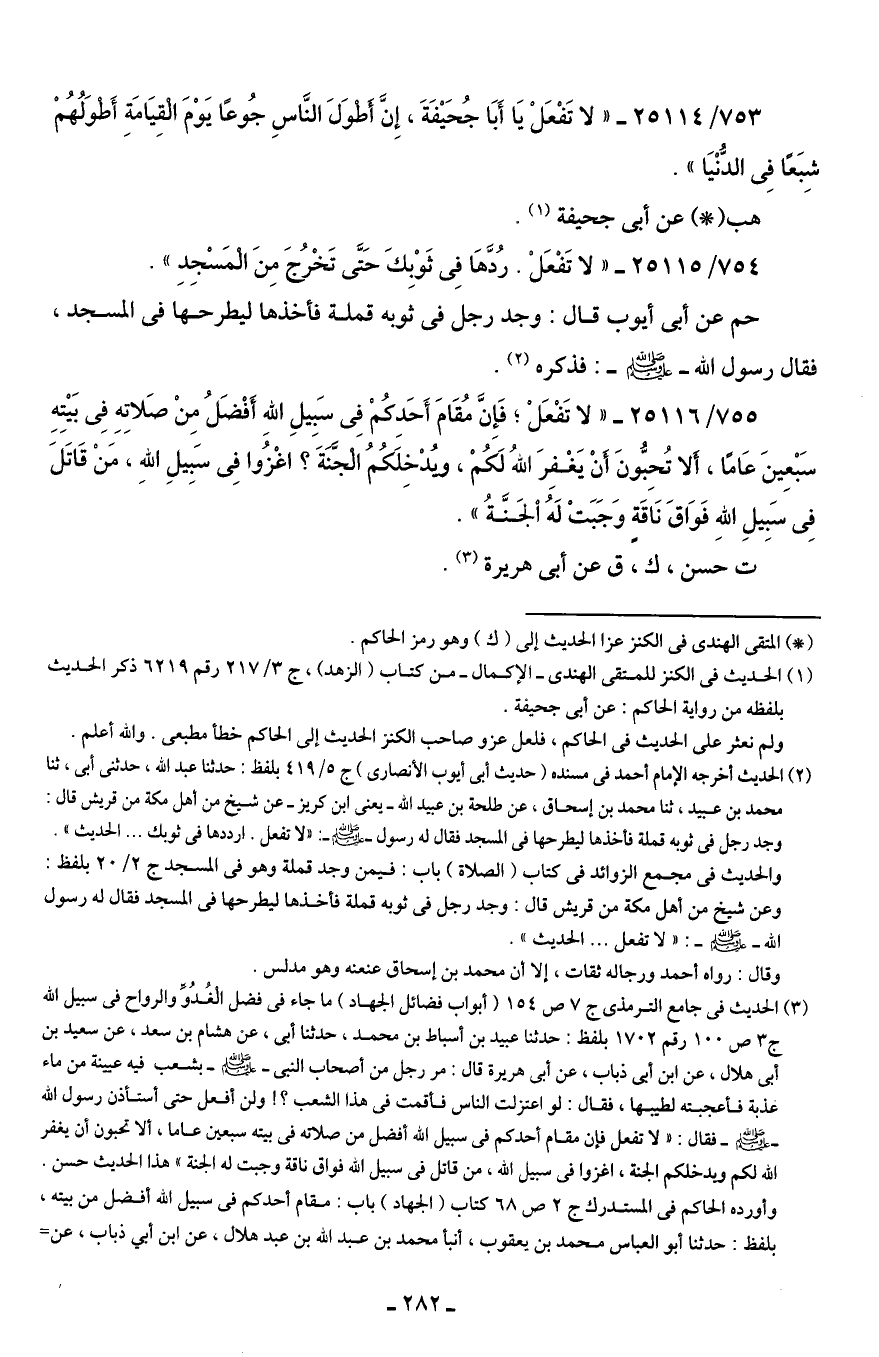 ٢٥١١٤/٧٥٣ ـ « لا تَفْعَلْ يَا أَبَا جُحَيْفَةَ ، إِنَّ أَطْوَلَ النَّاسِ جُوعًا يَوْمَ الْقِيَامَةِ أَطْوَلُهُمْ
شِبَعًا فِى الدُّنْيَا » .
هب(*) عن أبى جحيفة (١) .
٢٥١١٥/٧٥٤ ـ « لا تَفْعَلْ . رُدَّهَا فِى ثَوْبِكَ حَتَّى تَخْرُجَ مِنَ الْمَسْجِدِ » .
حم عن أبى أيوب قـال : وجد رجل فى ثوبه قملـة فأخذها ليطرحـها فى المسـجد ،
فقال رسول الله ـ ﷺ ـ : فذكره (٢) .
٢٥١١٦/٧٥٥ ـ « لا تَفْعَلْ ؛ فَإِنَّ مُقَامَ أَحَدِكُمْ فِى سَبِيلِ اللهِ أَفْضَلُ مِنْ صَلاتِهِ فِى بَيْتِهِ
سَبْعِينَ عَامًا ، أَلا تُحِبُّونَ أَنْ يَغْـفِـرَ اللهُ لَكُمْ ، ويُدْخِلَكُمُ الْجَنَّةَ ؟ اغْزُوا فِى سَبِيلِ اللهِ ، مَنْ قَاتَلَ
فِى سَبِيلِ اللهِ فَوَاقَ نَاقَةٍ وجَبَتْ لَهُ الْجَنَّـةُ » .
ت حسن ، ك ، ق عن أبى هريرة (٣) .
(*) المتقى الهندى فى الكنز عزا الحديث إلى ( ك ) وهو رمز الحاكم .
(١) الحـديث فى الكنز للمـتقى الهندى ـ الإكـمال ـ مـن كتـاب ( الزهد) ، ج ٢١٧/٣ رقم ٦٢١٩ ذكر الحـديث
بلفظه من رواية الحاكم : عن أبى جحيفة .
ولم نعثر على الحديث فى الحاكم ، فلعل عزو صاحب الكنز الحديث إلى الحاكم خطأ مطبعى . والله أعلم .
(٢) الحديث أخرجه الإمام أحمد فى مسنده ( حديث أبى أيوب الأنصارى ) ج ٤١٩/٥ بلفظ : حدثنا عبد الله ، حدثنى أبى ، ثنا
محمد بن عـبيد ، ثنا محمد بن إسـحاق ، عن طلحة بن عبيد الله ـ يعنى ابن كريز ـ عن شـيخ من أهل مكة من قريش قال :
وجد رجل فى ثوبه قملة فأخذها ليطرحها فى المسجد فقال له رسول ـ ﷺ ـ: «لا تفعل . ارددها فى ثوبك ... الحديث » .
والحديث فى مجـمع الزوائد فى كتاب ( الصلاة ) باب : فـيمن وجد قملة وهو فى المسـجد ج ٢٠/٢ بلفظ :
وعن شيخ من أهل مكة من قريش قال : وجد رجل فى ثوبه قملة فأخـذها ليطرحها فى المسجد فقال له رسول
الله ـ ﷺ ـ : « لا تفعل ... الحديث » .
وقال : رواه أحمد ورجاله ثقات ، إلا أن محمد بن إسحاق عنعنه وهو مدلس .
(٣) الحديث فى جامع التـرمذى ج ٧ ص ١٥٤ ( أبواب فضائل الجهـاد ) ما جاء فى فضل الْغُـدُوِّ والرواح فى سبيل الله
ج٣ ص ١٠٠ رقم ١٧٠٢ بلفظ : حدثنا عبيد بن أسباط بن محمـد ، حدثنا أبى ، عن هشام بن سعد ، عن سعيد بن
أبى هلال ، عن ابن أبى ذباب ، عن أبى هريرة قال : مر رجل من أصحاب النبى ـ ﷺ ـ بشـعب فيه عيينة من ماء
عذبة فـأعجبـته لطيبـها ، فقـال : لو اعتزلت الناس فـأقمت فى هذا الشعب ؟! ولن أفـعل حتى أستـأذن رسول الله
ـ ﷺ ـ فقال : « لا تفعل فإن مقـام أحدكم فى سبيل الله أفضل من صلاته فى بيته سبعين عامـا ، ألا تحبون أن يغفر
الله لكم ويدخلكم الجنة ، اغزوا فى سبيل الله ، من قاتل فى سبيل الله فواق ناقة وجبت له الجنة » هذا الحديث حسن .
وأورده الحاكم فى المستـدرك ج ٢ ص ٦٨ كتاب ( الجهاد ) باب : مـقام أحدكم فى سبيل الله أفـضل من بيته ،
بلفظ : حدثنا أبو العباس مـحمد بن يعقوب ، أنبأ محمد بن عـبد الله بن عبد هلال ، عن ابن أبي ذباب ، عن=
ـ ٢٨٢ ـ